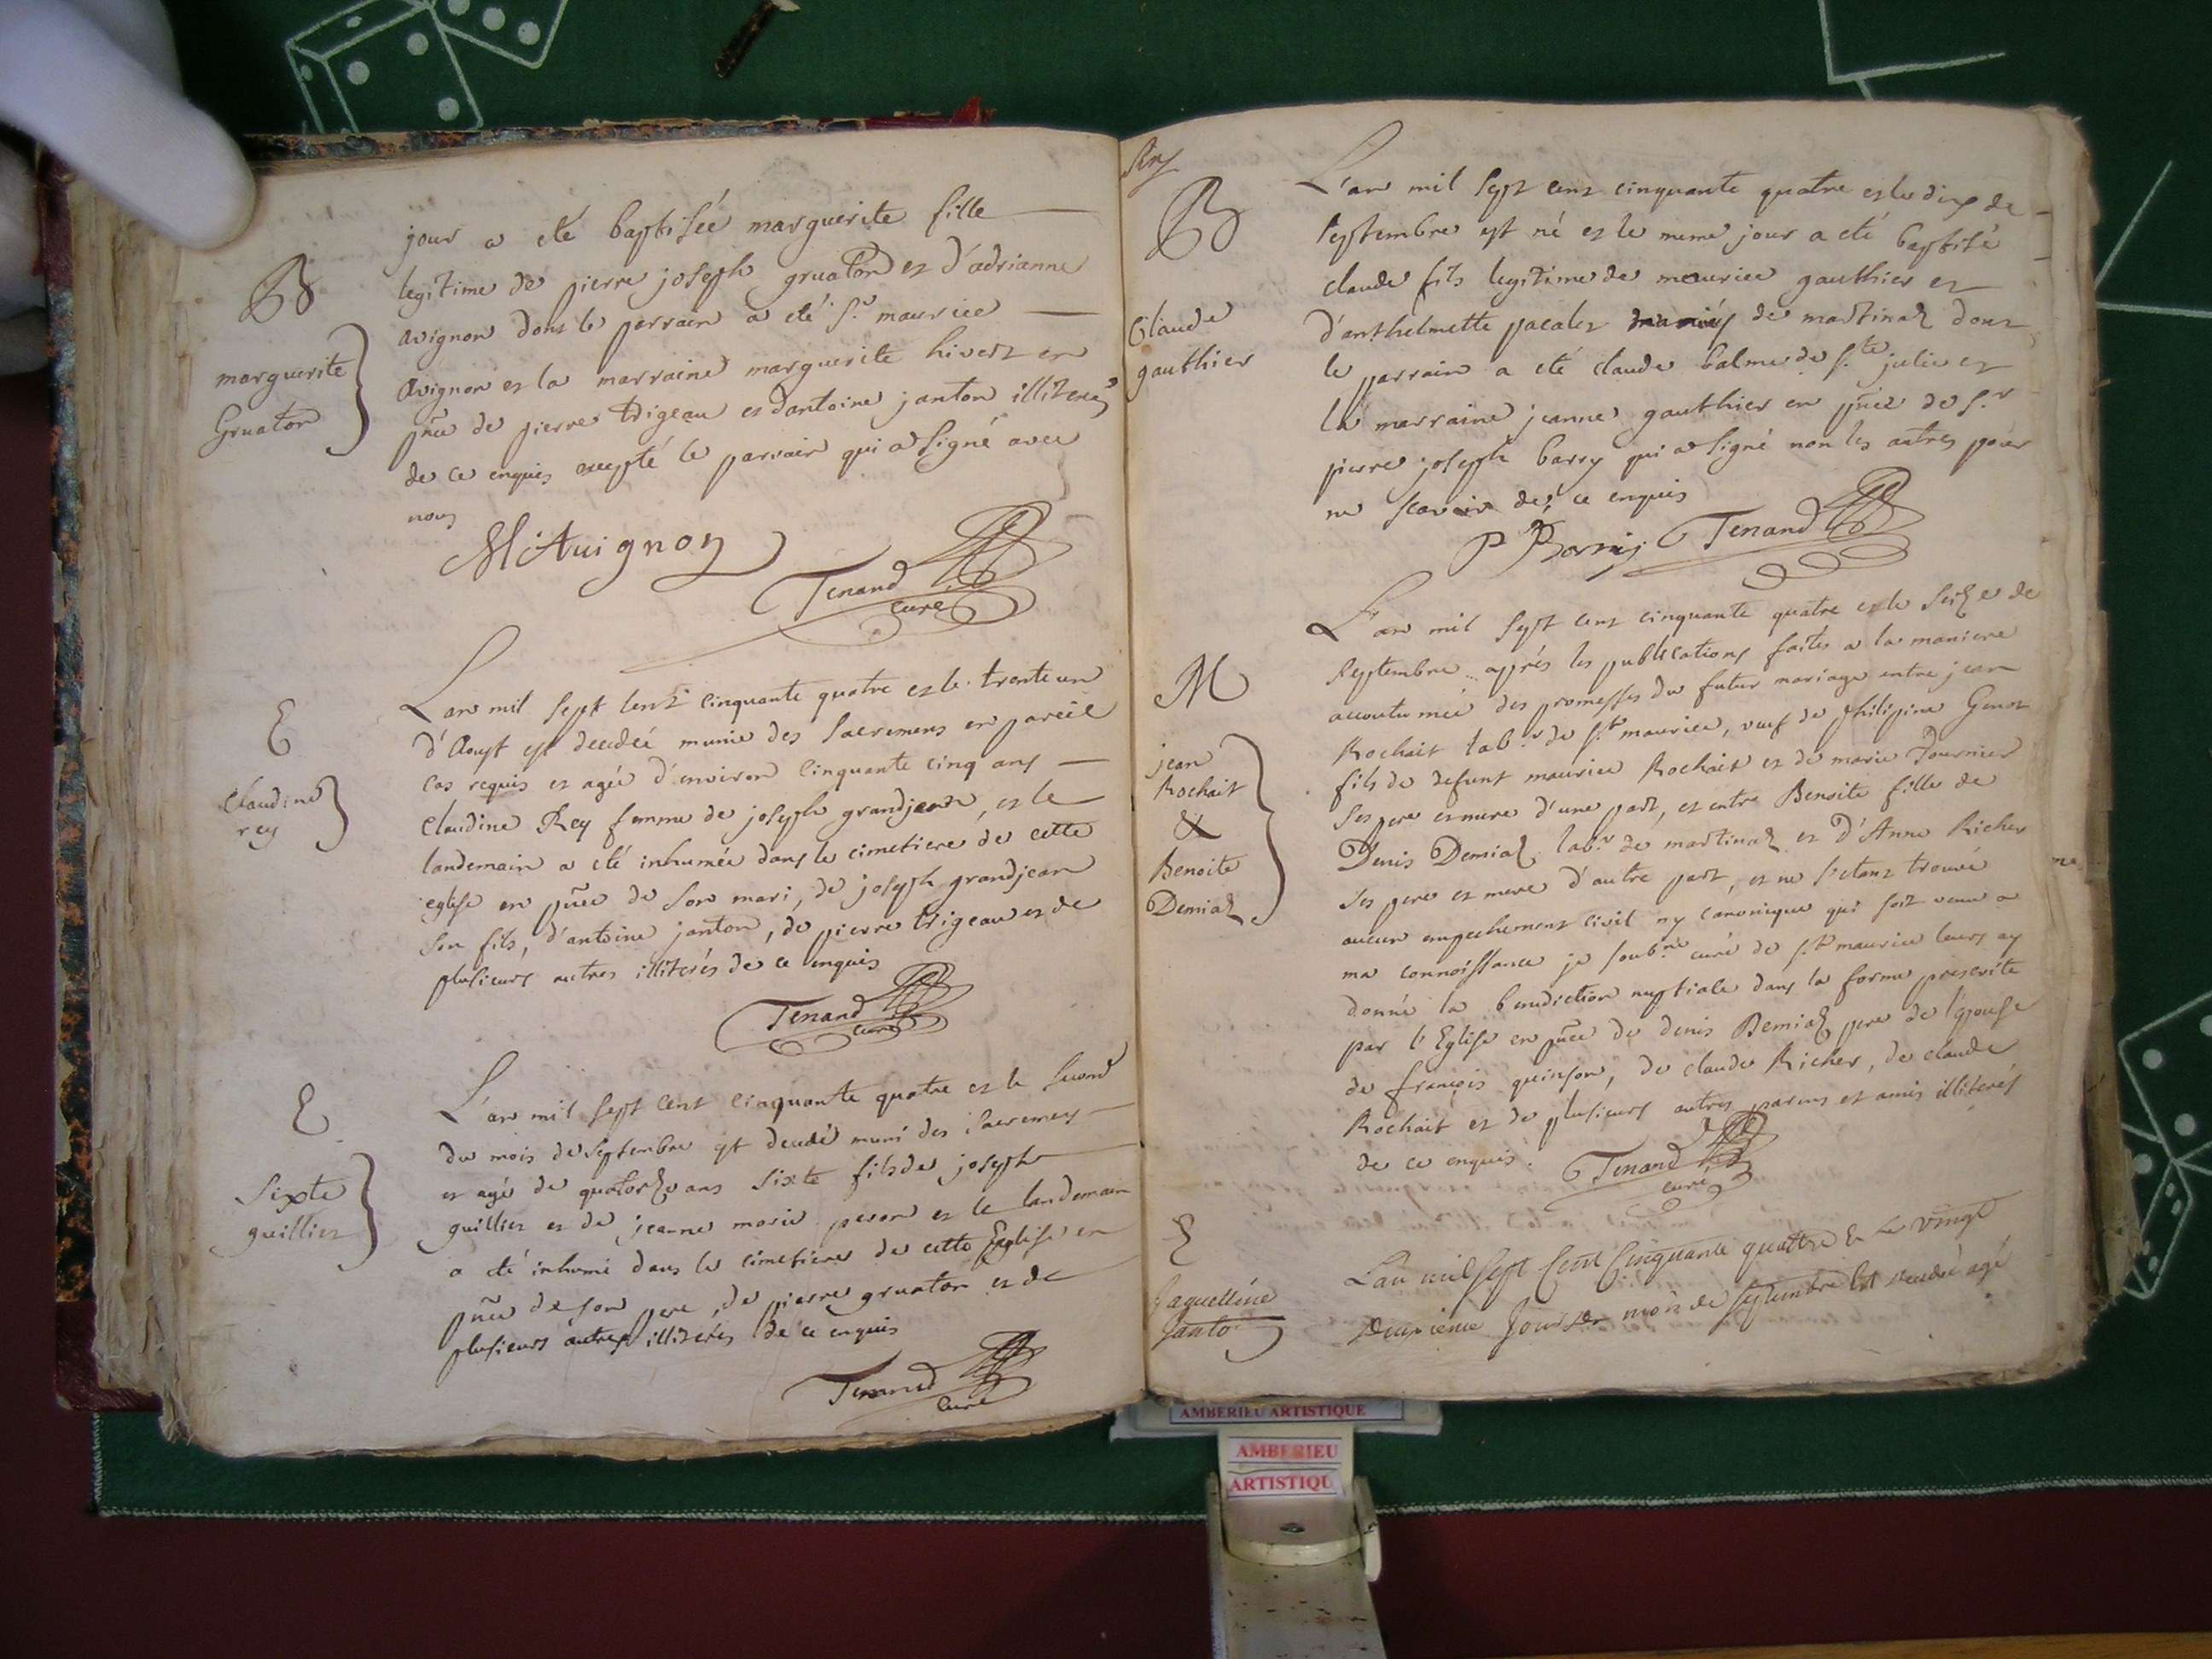 B
marguerite
Gruaton
jour a eté baptisée marguerite fille
legitime de pierre joseph gruaton et d'adrianne
avignon dont le parrain a eté Sr. maurice
avignon et la marraine marguerite hivert en
pnce de pierre trigeau et d'antoine janton illiterés
de ce enquis excepté le parrain qui a signé avec
nous
M Avignon
Tenand
curé
E
Claudine
rey
L'an mil sept cent cinquante quatre et le trente un
d'Aoust est decedée munie des sacremens en pareil
cas requis et agée d'environ cinquante cinq ans
Claudine Rey femme de joseph grandjean, et le
landemain a eté inhumée dans le cimetiere de cette
eglise en pnce de son mari, de joseph grandjean
son fils, d'antoine janton, de pierre trigeau et de
plusieurs autres illiterés de ce enquis
Tenand
curé
E
Sixte
guillier
L'an mil sept cent cinquante quatre et le second
du mois de septembre est decedé muni des sacremens
et agé de quatorze ans sixte fils de joseph
guillier et de jeanne marie peron et le landemain
a eté inhumé dans le cimetiere de cette Eglise en
pnce de son pere, de pierre gruaton et de
plusieurs autres illiterés de ce enquis
Tenand
curé
B
Claude
gauthier
L'an mil sept cent cinquante quatre et le dix de
septembre est né et le meme jour a eté baptisé
claude fils legitime de maurice gauthier et
d'anthelmette pacalet mariés de martinaz dont
le parrain a eté claude balme de Ste julie et
la marraine jeanne gauthier en pnce de Sr
pierre joseph barry qui a signé non les autres pour
ne scavoir de ce enquis
Tenand
M
jean
Rochait
&
Benoite
Demiaz
L'an mil sept cent cinquante quatre et le seize de
septembre aprés les publications faites a la maniere
accoutumée des promesses du futur mariage entre jean
Rochait labr. de St maurice, veuf de philipine Genot
fils de defunt maurice Rochait et de marie Fournier
ses pere et mere d'une part, et entre Benoite fille de
Denis Demiaz labr. de martinaz et D'Anne Richer
ses pere et mere d'autre part, et ne s'etant trouvé
aucun empechement civil ny canonique qui soit venu a
ma connoissance je soubné curé de St maurice leurs ay
donné la benediction nuptiale dans la forme prescrite
par l'Eglise en pnce de denis Demiaz pere de l'epouse
de françois quinson, de claude Richer, de claude
Rochait et de plusieurs autres parens et amis illiterés
de ce enquis.
Tenand
curé
E
Jaquelline
Janto
L'an mil sept Cent Cinquante quattre & Le vingt
deuxieme Jour du mois de septembre Est decedé agé
AMBERIEU ARTISTIQUE
AMBERIEU
ARTISTIQU